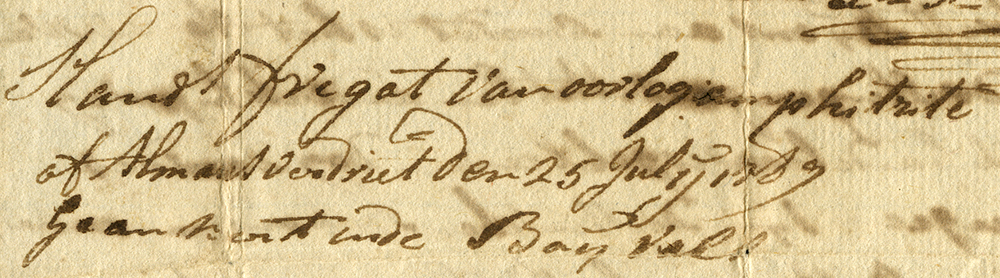 Slands frigat van oorlog amphitrite
of Almansverdriet Den 25 July
geankert inde Baÿ vals